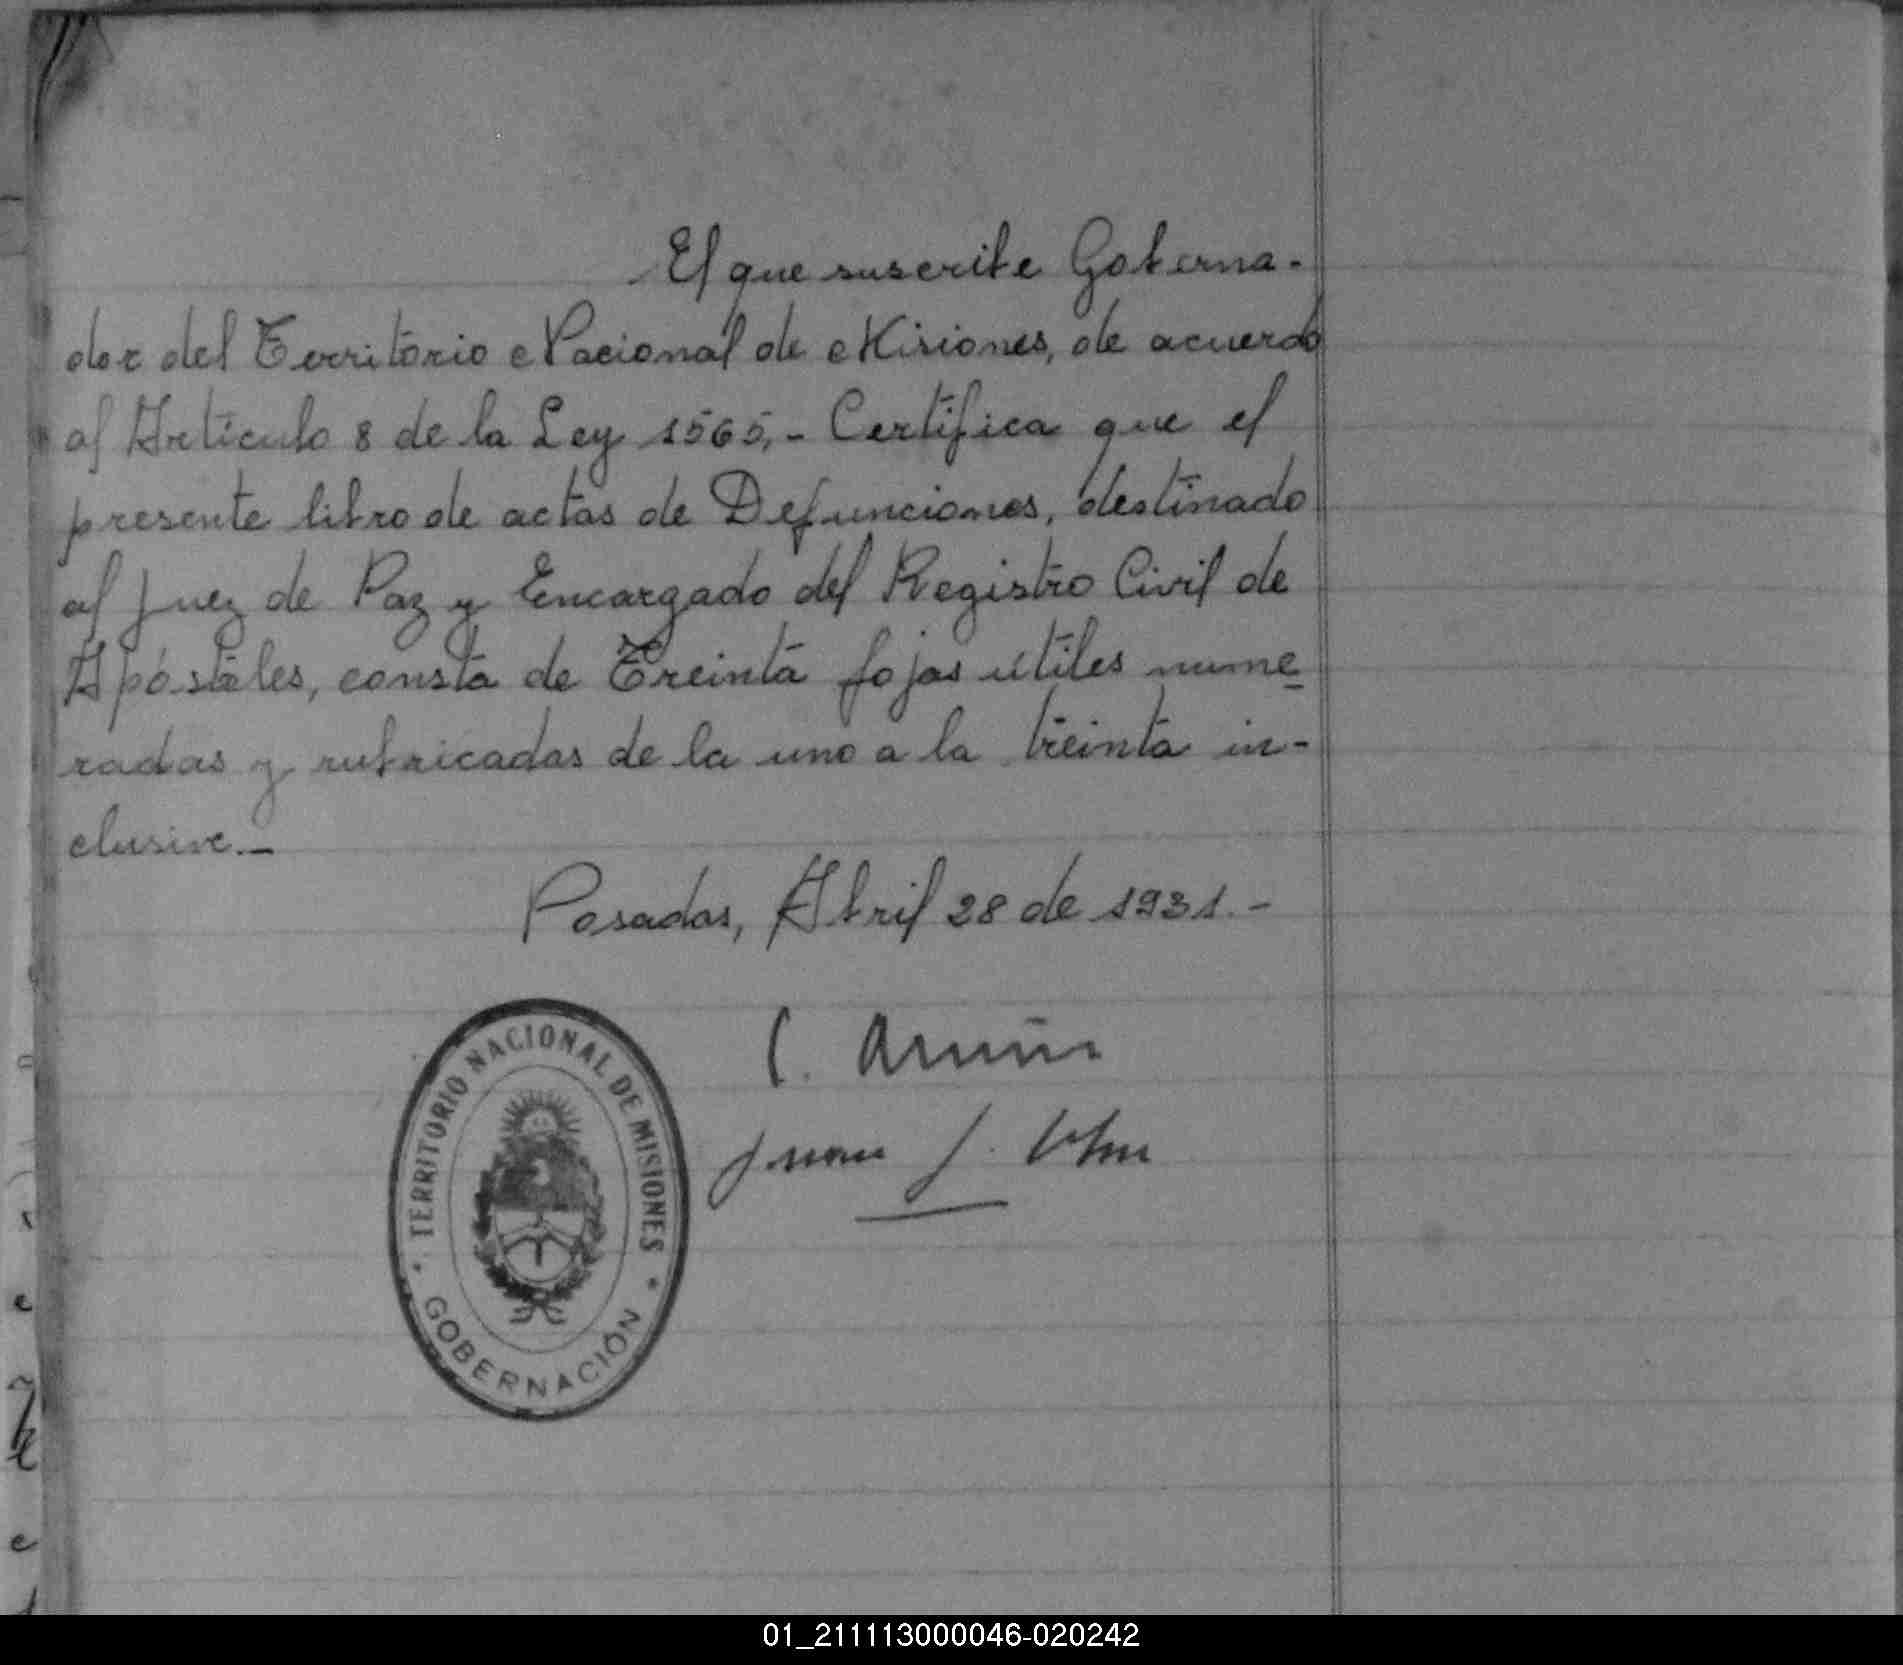 El que suscribe Goberna-
dor del Territorio Nacional de Misiones, de acuerdo
al Artículo 8 de la Ley 1565,- Certifica que el
presente libro de actas de Defunciones, destinado
al Juez de Paz y Encargado del Registro Civil de
Apóstoles, consta de Treinta fojas útiles nume
radas y rubricadas de la uno a la treinta in-
clusive.-
Posadas, Abril 28 de 1931.-
C.
Juan J.
TERRITORIO NACIONAL DE MISIONES
GOBERNACIÓN
01_211113000046-020242